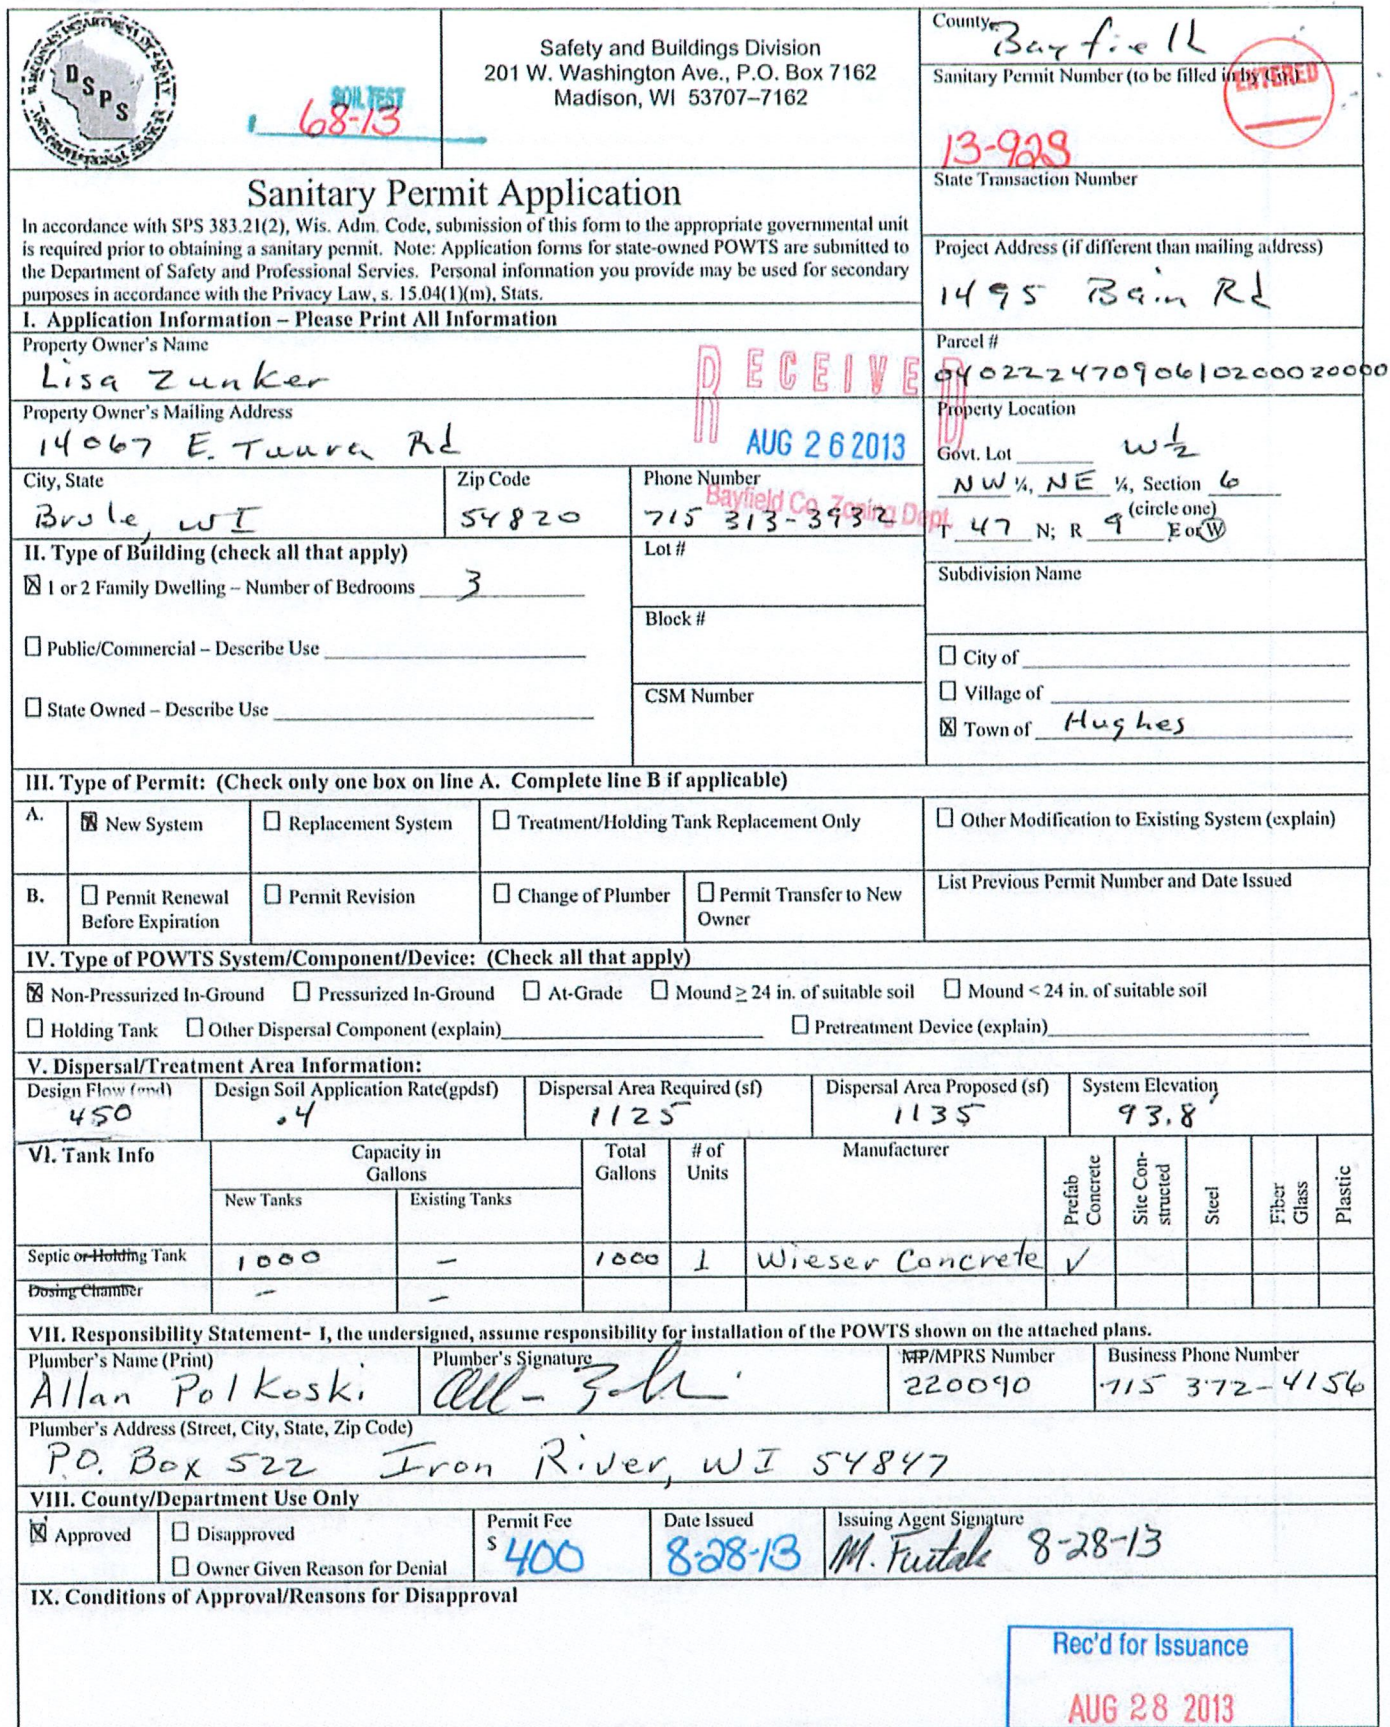 WISCONSIN DEPARTMENT OF SAFETY AND PROFESSIONAL SERVICES
DSPS
SOIL TEST
68-13
Safety and Buildings Division
201 W. Washington Ave., P.O. Box 7162
Madison, WI 53707–7162
County
Bayfield
Sanitary Permit Number (to be filled in by Co.)
ENTERED
13-92S
State Transaction Number
Sanitary Permit Application
In accordance with SPS 383.21(2), Wis. Adm. Code, submission of this form to the appropriate governmental unit
is required prior to obtaining a sanitary permit. Note: Application forms for state-owned POWTS are submitted to
the Department of Safety and Professional Servies. Personal information you provide may be used for secondary
purposes in accordance with the Privacy Law, s. 15.04(1)(m), Stats.
Project Address (if different than mailing address)
1495 Bain Rd
I. Application Information – Please Print All Information
Property Owner's Name
Lisa Zunker
RECEIVED
Parcel #
0402224709061020002 0000
Property Owner's Mailing Address
14067 E. Tuura Rd
AUG 26 2013
Property Location
Govt. Lot W ½
NW ¼, NE ¼, Section 6
(circle one)
T 47 N; R 9 E or W
City, State
Brule, WI
Zip Code
54820
Phone Number
715 313-3932
Bayfield Co. Zoning Dept.
II. Type of Building (check all that apply)
☒ 1 or 2 Family Dwelling – Number of Bedrooms 3
☐ Public/Commercial – Describe Use
☐ State Owned – Describe Use
Lot #
Block #
CSM Number
Subdivision Name
☐ City of
☐ Village of
☒ Town of Hughes
III. Type of Permit: (Check only one box on line A. Complete line B if applicable)
A. ☒ New System ☐ Replacement System ☐ Treatment/Holding Tank Replacement Only ☐ Other Modification to Existing System (explain)
B. ☐ Permit Renewal Before Expiration ☐ Permit Revision ☐ Change of Plumber ☐ Permit Transfer to New Owner List Previous Permit Number and Date Issued
IV. Type of POWTS System/Component/Device: (Check all that apply)
☒ Non-Pressurized In-Ground ☐ Pressurized In-Ground ☐ At-Grade ☐ Mound ≥ 24 in. of suitable soil ☐ Mound < 24 in. of suitable soil
☐ Holding Tank ☐ Other Dispersal Component (explain) ☐ Pretreatment Device (explain)
V. Dispersal/Treatment Area Information:
Design Flow (gpd) Design Soil Application Rate(gpdsf) Dispersal Area Required (sf) Dispersal Area Proposed (sf) System Elevation
450 .4 1125 1135 93.8'
VI. Tank Info
Capacity in Gallons
New Tanks Existing Tanks
Total Gallons
# of Units
Manufacturer
Prefab Concrete
Site Constructed
Steel
Fiber Glass
Plastic
Septic or Holding Tank 1000 – 1000 1 Wieser Concrete ✓
Dosing Chamber – –
VII. Responsibility Statement- I, the undersigned, assume responsibility for installation of the POWTS shown on the attached plans.
Plumber's Name (Print) Plumber's Signature MP/MPRS Number Business Phone Number
Allan Polkoski 220090 715 372-4156
Plumber's Address (Street, City, State, Zip Code)
P.O. Box 522 Iron River, WI 54847
VIII. County/Department Use Only
☒ Approved
☐ Disapproved
☐ Owner Given Reason for Denial
Permit Fee
$ 400
Date Issued
8-28-13
Issuing Agent Signature
M. Furtak 8-28-13
IX. Conditions of Approval/Reasons for Disapproval
Rec'd for Issuance
AUG 28 2013